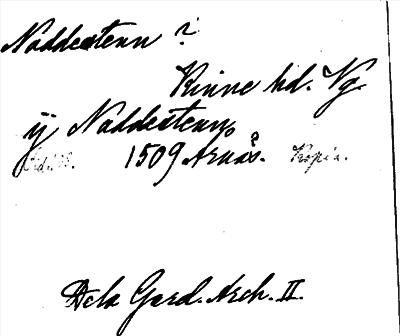 Naddestenn ?
Kinne hd. Vg
ij Naddestenn
1509 Arnås. Kopia.
Dela Gard. Arch. II.